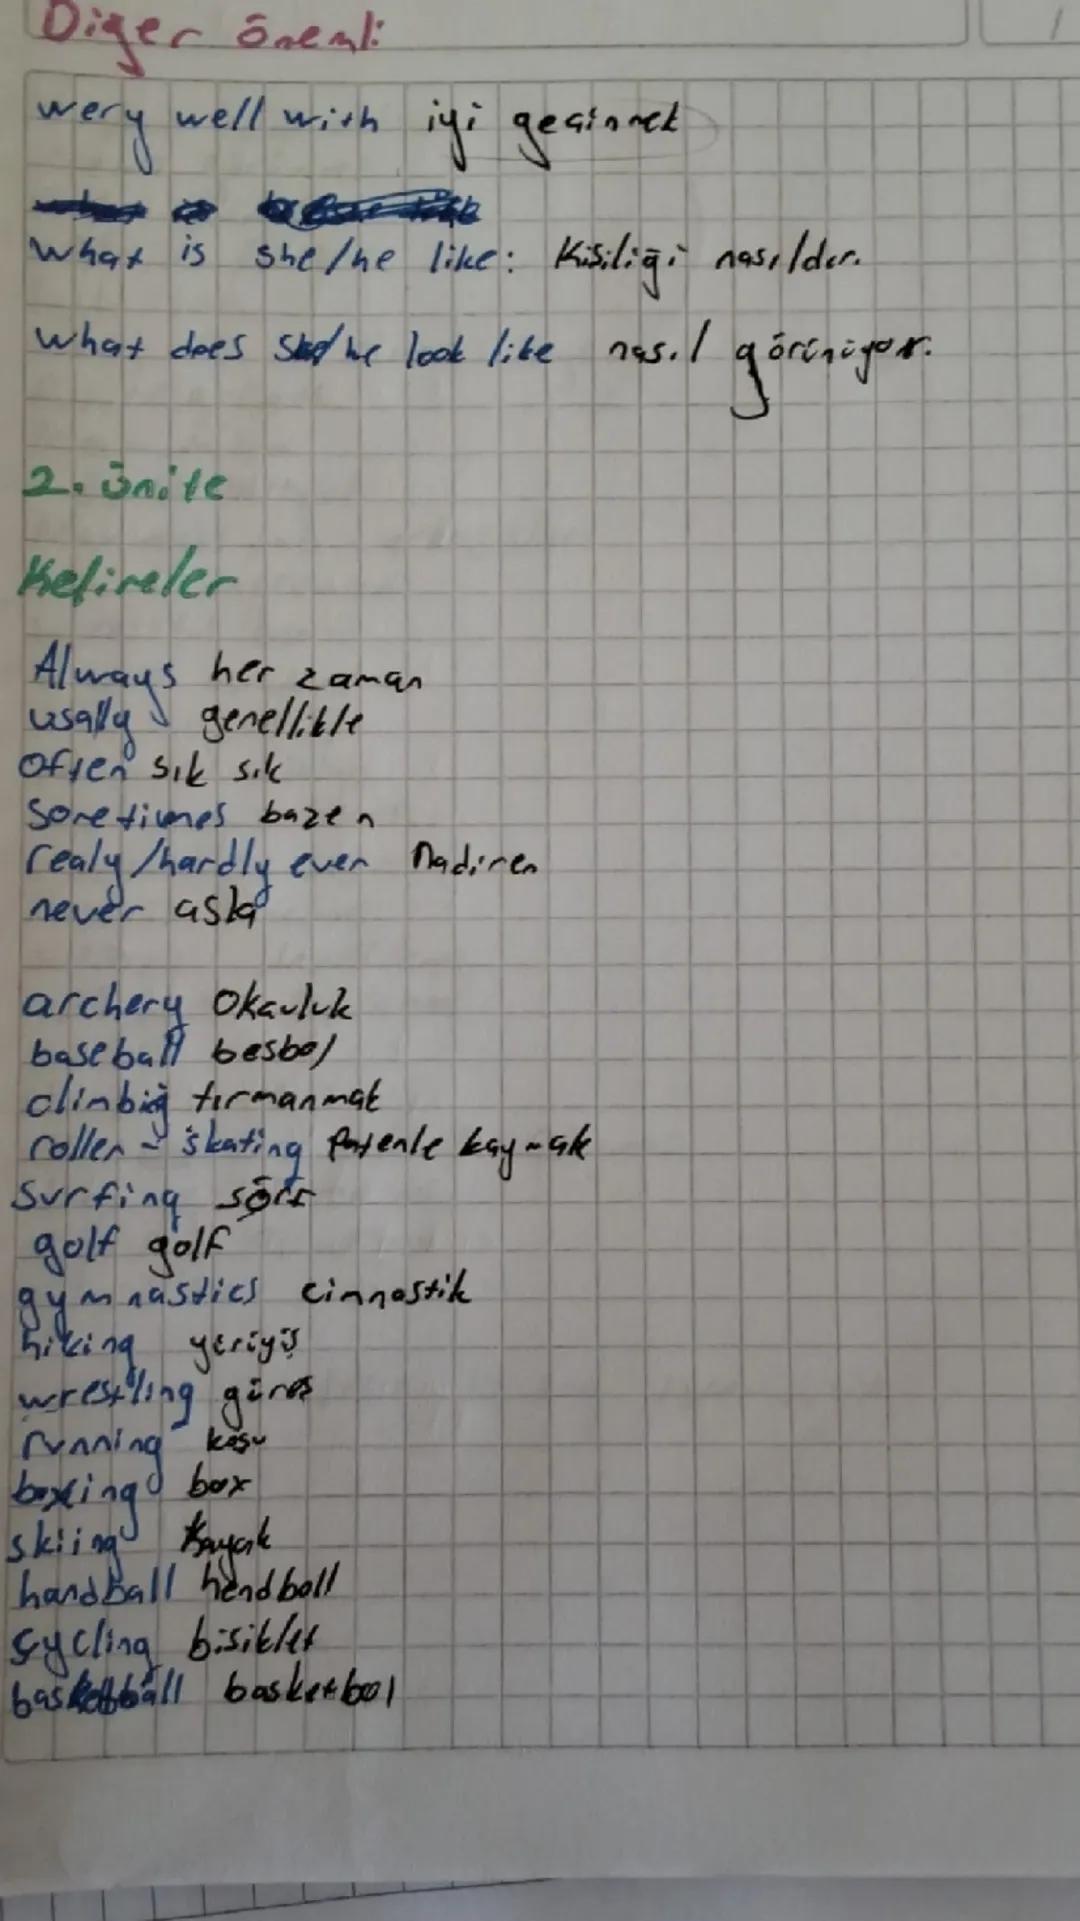 Diğer önemli
wery well with iyi geçinmek
What is she/he like: Kişiliği nasıldır.
What does she/he look like nasıl görünüyor.
2. ünite
Kelimeler
Always her zaman
usally genellikle
Often sık sık
Sometimes bazen
realy/hardly ever Nadiren
never asla
archery Okculuk
baseball besbol
climbig tırmanmak
roller-skating Patenle kaymak
Surfing sörf
golf golf
gymnastics cimnastik
hiking yürüyüş
wrestling güreş
running koşu
boxing box
skiing Kayak
handball hendboll
cycling bisiklet
basketball basketbol